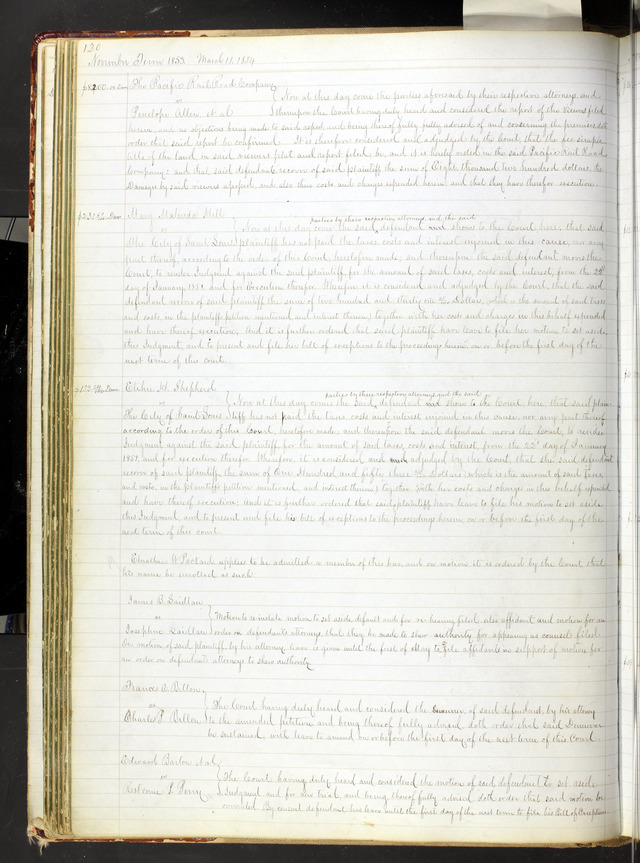 120
November Term 1853 March 11. 1854
The Pacific Rail Road Company
vs
Penelope Allen et al
Now at this day come the parties aforesaid by their respective attorneys, and
thereupon the Court having duly heard and considered the report of the viewers filed
herein, and no objections being made to said report and being thereof fully advised of and concerning the premises doth
order that said report be confirmed. It is therefore considered and adjudged by the Court, that the fee simple
title of the land in said viewers plat and report filed, be, and it is hereby vested in the said Pacific Rail Road
Company: and that said defendants recover of said plaintiff the sum of Eight thousand two hundred dollars, the
damages by said viewers assessed, and also their costs and charges expended herein and that they have therefor execution.
Mary Malinda Hill
vs
The City of Saint Louis
parties by their respective attorneys, and the said
Now at this day come the said defendant and shows to the Court here, that said
plaintiff has not paid the taxes, costs and interest enjoined in this cause, nor any
part thereof, according to the order of this Court, heretofore made, and thereupon the said defendant moves the
Court, to render Judgment against the said plaintiff, for the amount of said taxes, costs and interest, from the 22d
day of January 1851, and for Execution therefor. Wherefore it is considered and adjudged by the Court, that the said
defendant recover of said plaintiff the sum of two hundred and thirty six Dollars, which is the amount of said taxes
and costs, in the plaintiffs petition mentioned and interest thereon; together with her costs and charges in this behalf expended
and have thereof execution. And it is further ordered that said plaintiff have leave to file her motion to set aside,
this Judgment, and to present and file her bill of exceptions to the proceedings herein, on or before the first day of the
next term of this court.
Elihu H. Shepherd
vs
The City of Saint Louis
parties by their respective attorneys and the said
Now at this day comes the said, defendant and shows to the Court here that said plain-
tiff has not paid the taxes, costs and interest enjoined in this cause, nor any part thereof,
according to the orders of this Court, heretofore made, and thereupon the said defendant moves the Court, to render
Judgment against the said plaintiff for the amount of said taxes, costs and interest, from the 22d day of January
1851, and for execution therefor. Wherefore it is considered and adjudged by the Court, that the said defendant
recover of said plaintiff, the sum of One Hundred and fifty three Dollars; which is the amount of said taxes,
and costs, in the plaintiffs petition mentioned, and interest thereon; together with her costs and charges in this behalf expended
and have thereof execution: And it is further ordered that said plaintiff have leave to file his motion to set aside
this Judgment, and to present and file his bill of exceptions to the proceedings herein on or before the first day of the
next term of this court.
W Packard applies to be admitted a member of this bar, and on motion it is ordered by the Court that
his name be enrolled as such
James B. Laidlaw
vs
Josephine Laidlaw
Motion to reinstate motion to set aside default and for re-hearing filed, also affidavit and motion for an
order on defendants attorneys, that they be made to show authority for appearing as counsel filed
On motion of said plaintiff, by his attorney, leave is given until the first of May to file affidavits in support of motion for
an order on defendants attorneys to show authority
Frances A. Billon
vs
Charles F. Billon
The Court having duly heard and considered the Demurrer of said defendant, by his attorney
to the amended petition and being thereof fully advised, doth order that said Demurrer
be sustained, with leave to amend on or before the first day of the next term of this Court
Edward Barlow et al
vs
L Perry
The Court having duly heard and considered the motion of said defendant to set aside
Judgment and for new trial, and being thereof fully advised, doth order that said motion be
overruled. By consent defendant has leave until the first day of the next term to file his Bill of Exceptions